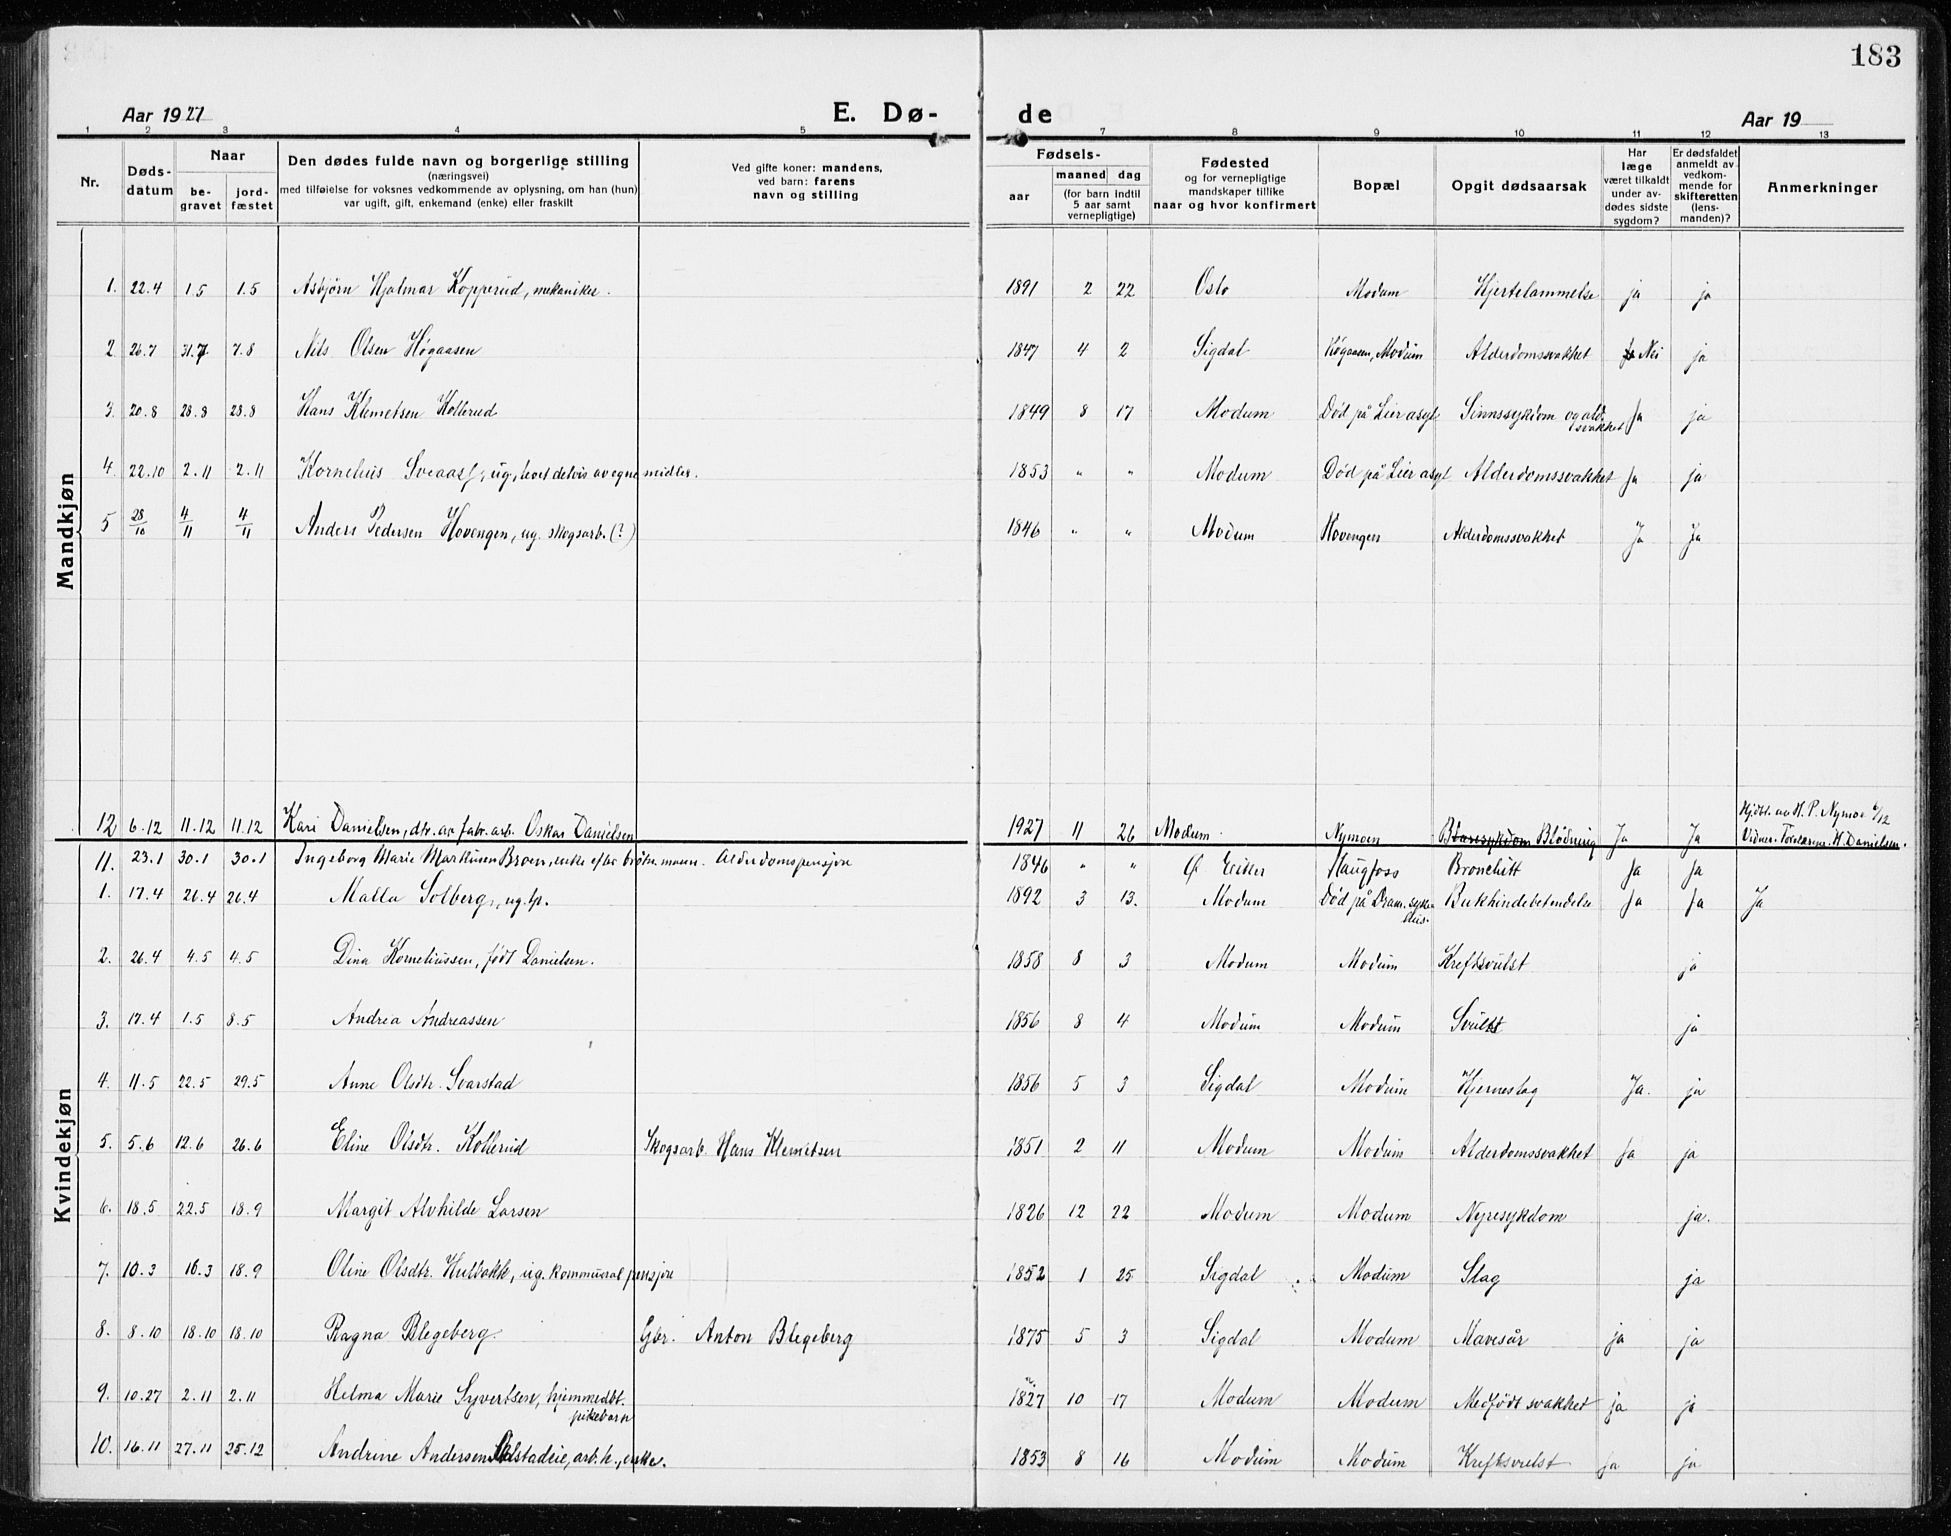 183
Aar 1927
E. Dø-
de
Aar 19
1 2 3 4 5 7 8 9 10 11 12 13
Nr.
Døds-
datum
Naar
be-
gravet
jord-
fæstet
Den dødes fulde navn og borgerlige stilling
(næringsvei)
med tilføielse for voksnes vedkommende av oplysning, om han (hun)
var ugift, gift, enkemand (enke) eller fraskilt
Ved gifte koner: mandens,
ved barn: farens
navn og stilling
Fødsels-
aar
maaned dag
(for barn indtil
5 aar samt
vernepligtige)
Fødested
og for vernepligtige
mandskaper tillike
naar og hvor konfirmert
Bopæl
Opgit dødsaarsak
Har
læge
været tilkaldt
under av-
dødes sidste
sygdom?
Er dødsfaldet
anmeldt av
vedkom-
mende for
skifteretten
(lens-
manden)?
Anmerkninger
Mandkjøn
1. 22.4 1.5 1.5 Asbjørn Hjalmar Kopperud, mekaniker. 1891 2 22 Oslo Modum Hjertelammelse ja ja
2. 26.7 31.7 7.8 Nils Olsen Høgaasen 1847 4 2 Sigdal Høgaasen, Modum Alderdomssvakhet Nei ja
3. 20.8 28.8 28.8 Hans Klemetsen Kollerud 1849 8 17 Modum Død på Lier asyl Sinnssykdom og ald.svakhet Ja ja
4. 22.10 2.11 2.11 Kornelius Sveaas, ug., levet delvis av egne midler. 1853 " " Modum Død på Lier asyl Alderdomssvakhet Ja ja
5 28/10 4/11 4/11 Anders Pedersen Hovengen, ug. skogsarb. (?) 1846 " " Modum Hovengen Alderdomssvakhet Ja Ja
12 6.12 11.12 11.12 Kari Danielsen, dtr. av fabr. arb. Oskar Danielsen 1927 11 26 Modum. Nymoen Blødning Ja Ja Hjdbt. av H. P. Nymoe 6/12
H. Danielsen.
Kvindekjøn
11. 23.1 30.1 30.1 Ingeborg Marie Markussen Broen, enke efter Alderdomspensjon 1846 " " Ø. Eiker Haugfoss Bronchitt Ja Ja
1. 17.4 26.4 26.4 Malla Solberg, ug. tp. 1892 3 13. Modum Død på Dram. sykehus. Bukhindebetendelse Ja Ja Ja
2. 26.4 4.5 4.5 Dina Korneliussen, født Danielsen. 1858 8 3 Modum Modum Kreftsvulst ja
3. 17.4 1.5 8.5 Andrea Andreassen 1856 8 4 Modum Modum Svulst ja
4. 11.5 22.5 29.5 Anne Olsdtr. Svarstad 1856 5 3 Sigdal Modum Hjerneslag Ja. ja
5. 5.6 12.6 26.6 Eline Olsdtr. Kollerud Skogsarb. Hans Klemetsen 1851 2 11 Modum Modum Alderdomssvakhet Ja ja
6. 18.5 22.5 18.9 Margit Alvhilde Larsen 1826 12 22 Modum Modum Nyresykdom ja.
7. 10.3 16.3 18.9 Oline Olsdtr. Hulbakk, ug. kommunal pensjon 1852 1 25 Sigdal Modum Slag ja
8. 8.10 18.10 18.10 Ragna Blegeberg. Gbr. Anton Blegeberg 1875 5 3 Sigdal Modum Mavesår ja ja
9. 10.27 2.11 2.11 Helma Marie Syvertsen, hjemmedbt. pikebarn 1827 10 17 Modum Modum Medfødt svakhet ja ja
10. 16.11 27.11 25.12 Andrine Andersen arb.h., enke. 1853 8 16 Modum Modum Kreftsvulst ja ja